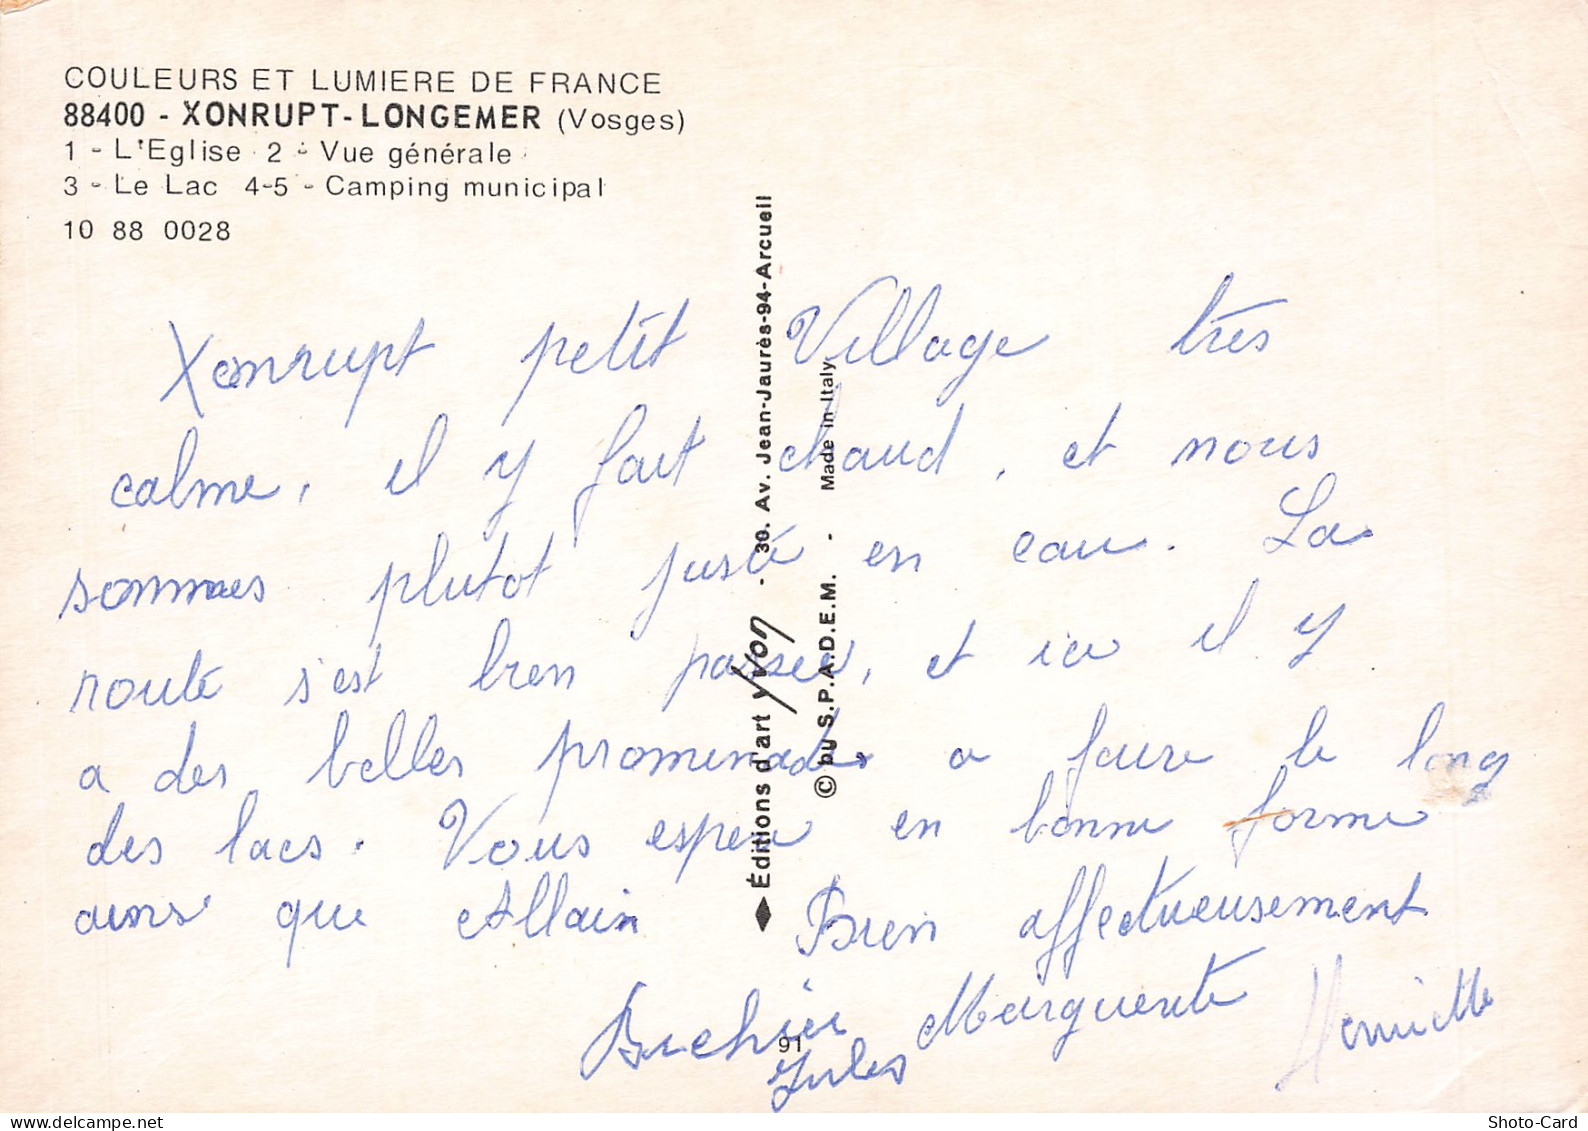 COULEURS ET LUMIERE DE FRANCE
88400 - XONRUPT-LONGEMER (Vosges)
1 - L'Eglise 2 - Vue générale
3 - Le Lac 4-5 - Camping municipal
10 88 0028
Éditions d'art Yvon - 30. Av. Jean-Jaurès-94-Arcueil
© by S.P.A.D.E.M. - Made in Italy
Xonrupt petit Village très
calme, il y fait chaud, et nous
sommes plutot juste en eau. La
route s'est bien passée, et ici il y
a des belles promenades a faire le long
des lacs. Vous espere en bonne forme
ainsi que Allain Bien affectueusement
Marguerite Henriette
91
Jules
delcampe.net
Shoto-Card